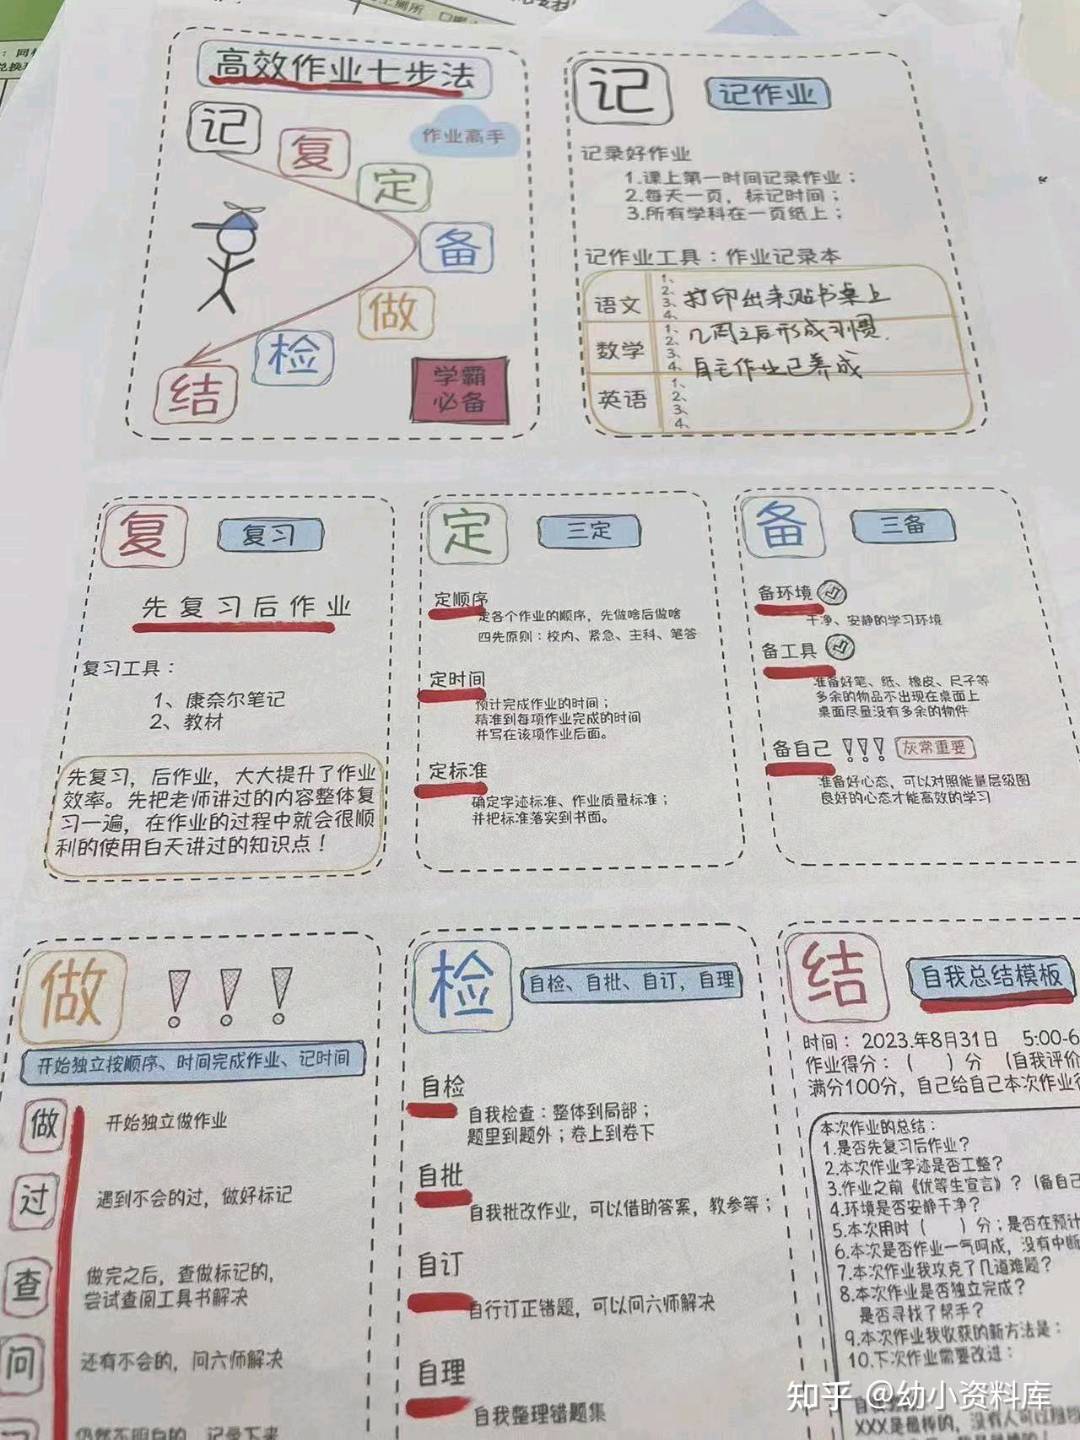 高效作业七步法
作业高手
记
复
定
备
做
检
结
学霸
必备
记
记作业
记录好作业
1.课上第一时间记录作业；
2.每天一页，标记时间；
3.所有学科在一页纸上；
记作业工具：作业记录本
语文
1、
2、
3、
4、
打印出来贴书桌上
数学
1、
2、
3、
4、
几周之后形成习惯.
自主作业已养成
英语
1、
2、
3、
4、
复
复习
先复习后作业
复习工具：
1、康奈尔笔记
2、教材
先复习，后作业，大大提升了作业
效率。先把老师讲过的内容整体复
习一遍，在作业的过程中就会很顺
利的使用白天讲过的知识点！
定
三定
定顺序
定各个作业的顺序，先做啥后做啥
四先原则：校内、紧急、主科、笔答
定时间
预计完成作业的时间；
精准到每项作业完成的时间
并写在该项作业后面。
定标准
确定字迹标准、作业质量标准；
并把标准落实到书面。
备
三备
备环境
干净、安静的学习环境
备工具
准备好笔、纸、橡皮、尺子等
多余的物品不出现在桌面上
桌面尽量没有多余的物件
备自己 ！！！ 灰常重要
准备好心态，可以对照能量层级图
良好的心态才能高效的学习
做 ！！！
开始独立按顺序、时间完成作业、记时间
做
开始独立做作业
过
遇到不会的过，做好标记
查
做完之后，查做标记的，
尝试查阅工具书解决
问
还有不会的，问六师解决
仍然不明白的，记录下来
检
自检、自批、自订，自理
自检
自我检查：整体到局部；
题里到题外；卷上到卷下
自批
自我批改作业，可以借助答案，教参等；
自订
自行订正错题，可以问六师解决
自理
自我整理错题集
结
自我总结模板
时间：2023年8月31日 5:00-6
作业得分：（ ）分 （自我评价
满分100分，自己给自己本次作业
本次作业的总结：
1.是否先复习后作业？
2.本次作业字迹是否工整？
3.作业之前《优等生宣言》？（备自己
4.环境是否安静干净？
5.本次用时（ ）分；是否在预计
6.本次是否作业一气呵成，没有中断
7.本次作业我攻克了几道难题？
8.本次作业是否独立完成？
是否寻找了帮手？
9.本次作业我收获的新方法是：
10.下次作业需要改进：
XXX是最棒的，没有人可以
知乎 @幼小资料库